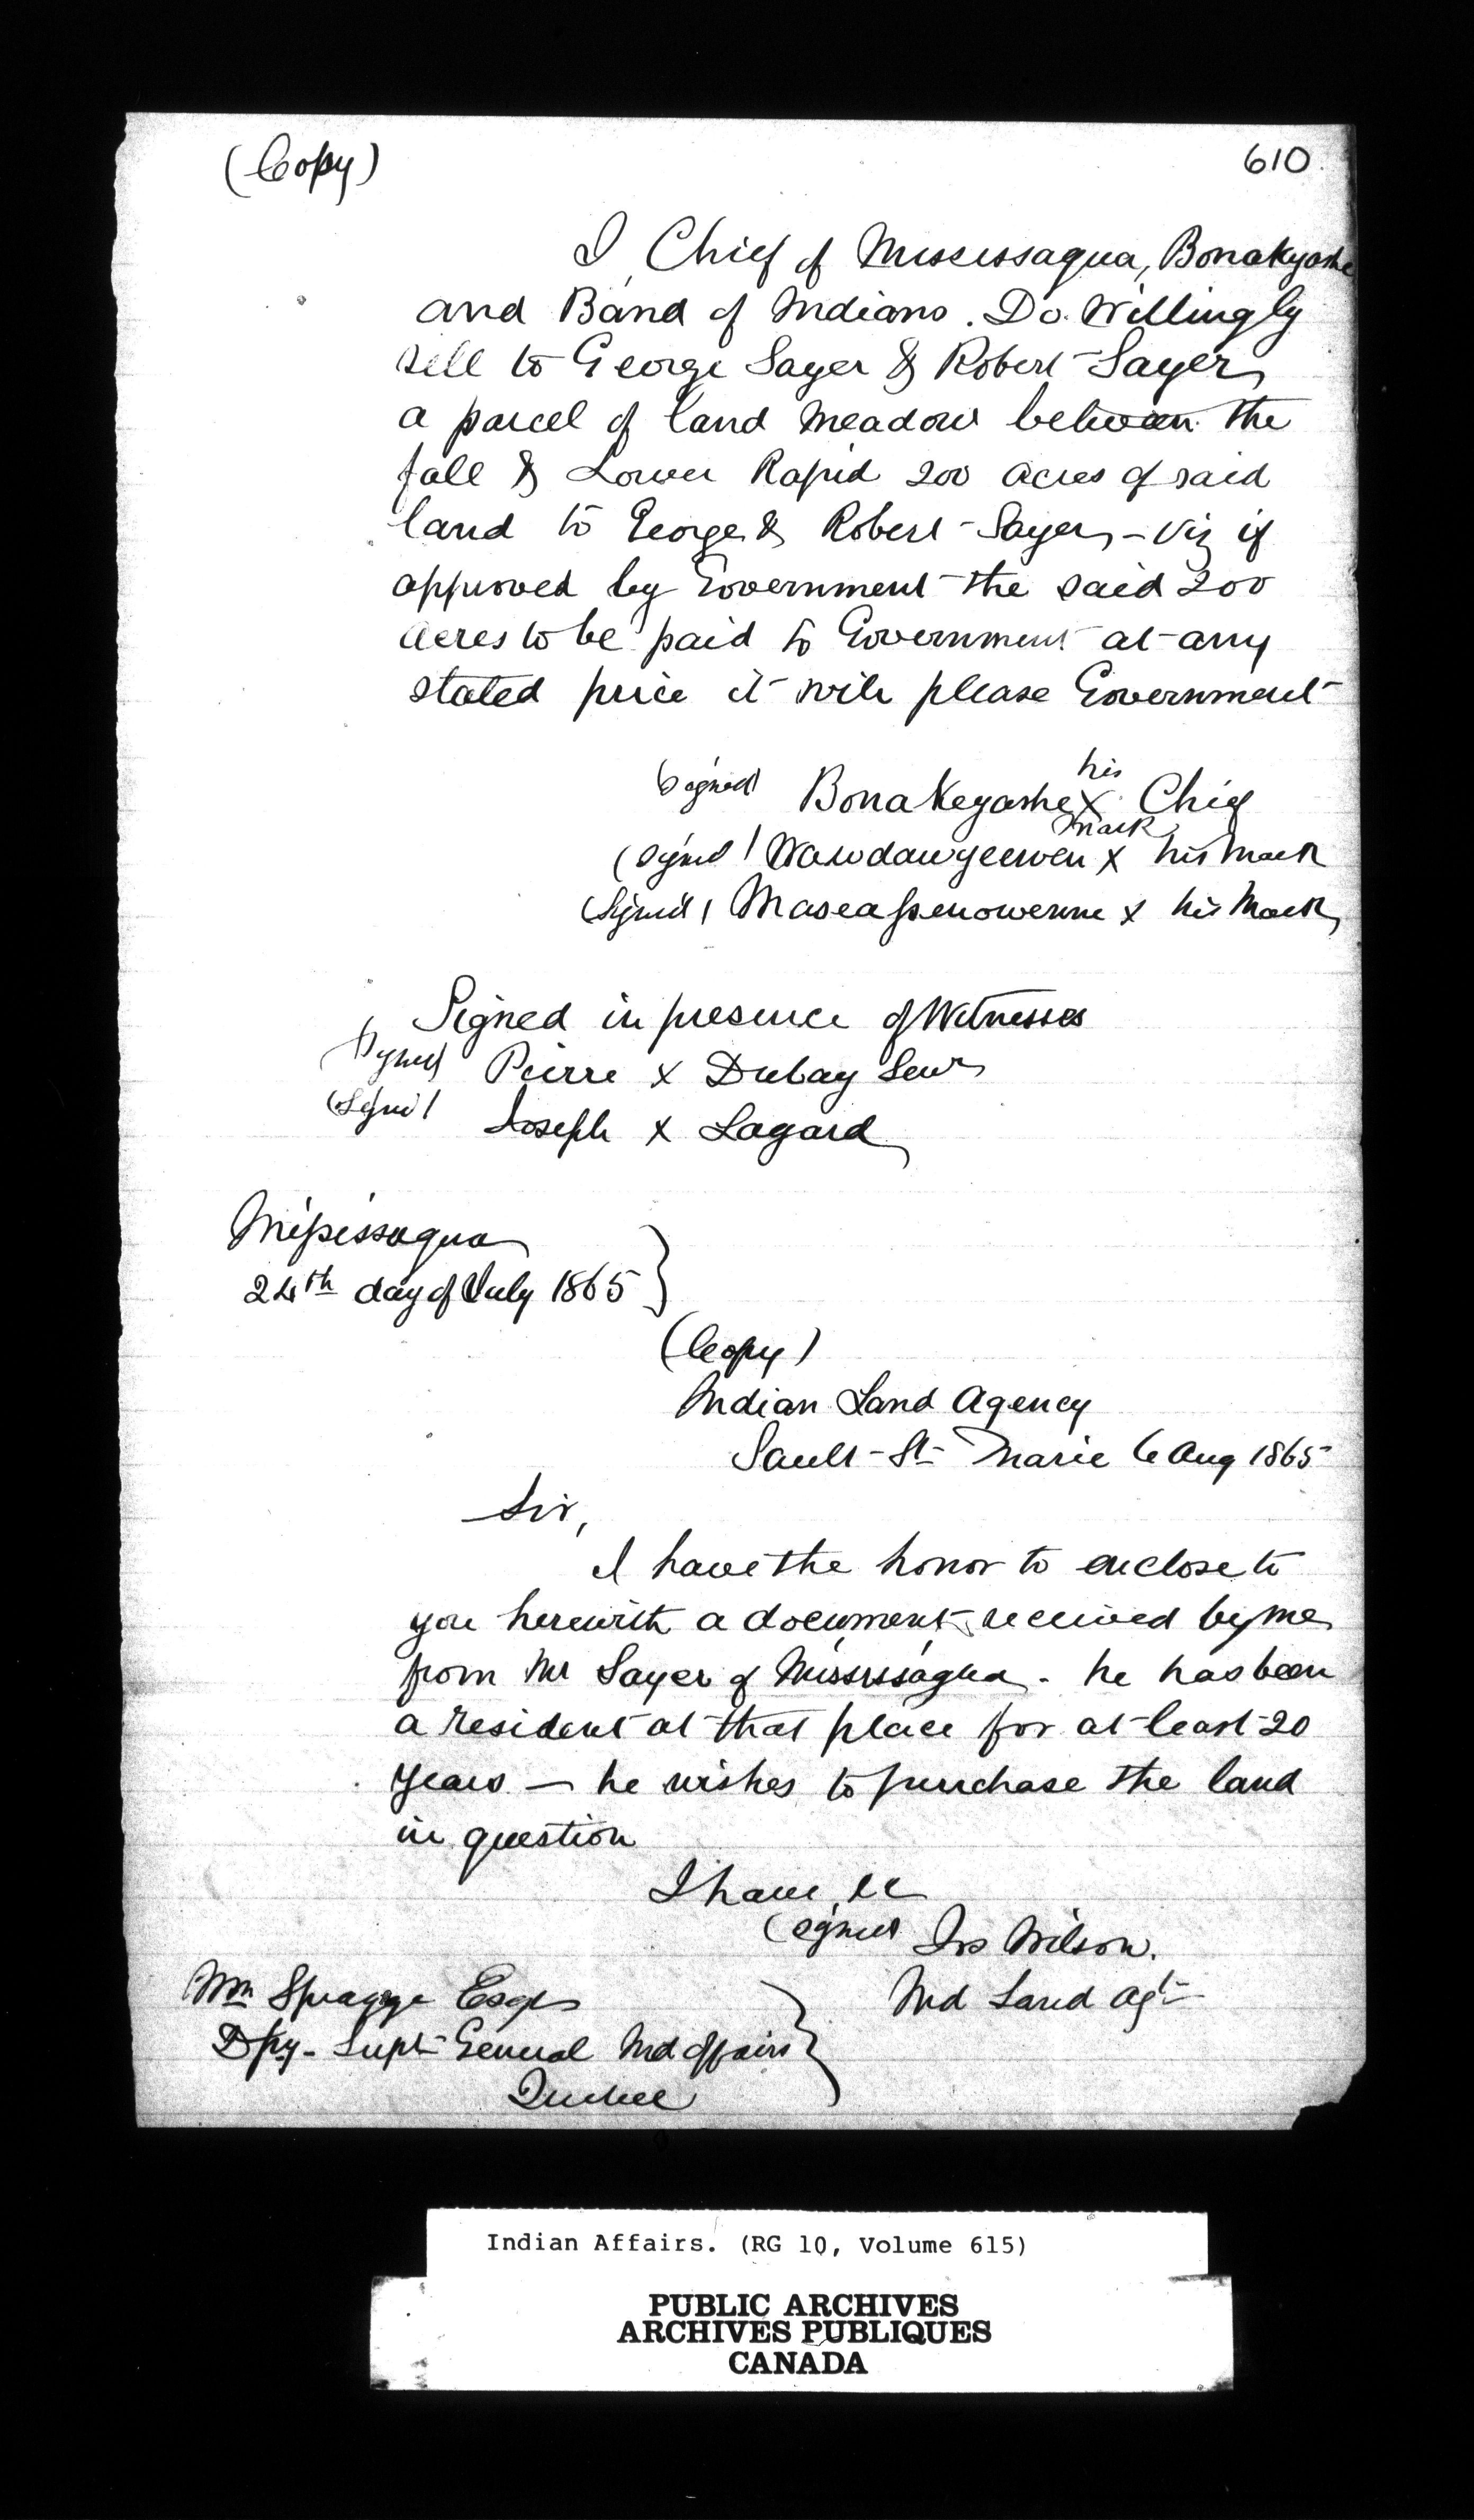 (Copy)
610
I Chief of Mississaqua, Bonakyashe
and Band of Indians. Do. Willingly
sell to George Sayer & Robert Sayer,
a parcel of land meadow between the
fall & Lower Rapid 200 acres of said
land to George & Robert Sayer, - viz if
approved by Government the said 200
acres to be paid to Government at any
stated price it will please Government
his
(signed) Bonakegashe X Chief
mark
(signed) Wawdawgeewen X his mark
(signed) X his mark
Signed in presence of Witnesses
(signed) Pierre X Dubay Senr
(signed) Joseph X Lagard
Missisaqua
24th day of July 1865
(Copy)
Indian Land Agency
Sault St Marie 6 Aug 1865
Sir,
I have the honor to enclose to
you herewith a document received by me
from Mr Sayer of Mississagua - he has been
a resident at that place for at least 20
years — he wishes to purchase the land
in question
I have, &c
(signed Jos Wilson.
Ind Land Agt
Wm Spragge Esqre
Dpy- Supt General Ind Affairs
Quebec
Indian Affairs. (RG 10, Volume 615)
PUBLIC ARCHIVES
ARCHIVES PUBLIQUES
CANADA